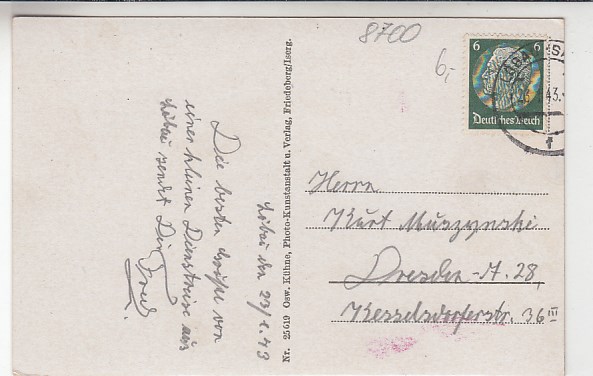 8700
6,-
6 6
Deutsches Reich
LÖBAU (SA
43.
f
Löbau den 23/1.43
Die besten Grüße von
einer kleinen Dienstreise aus
Löbau sendet Dir
Nr. 25619 Osw. Kühne, Photo-Kunstanstalt u. Verlag, Friedeberg/Iserg.
Herrn
Kurt Muszynski
Dresden-A. 28,
Kesselsdorferstr. 36 III